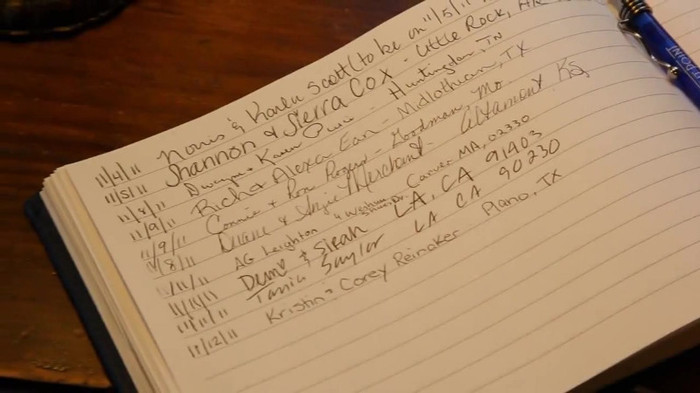 11/4/11 Norris & Karen Scott (to be on 11/5/11
11/5/11 Shannon & Sierra Cox - Little Rock, AR
11/8/11 Dwayne & Karen - Huntingdon, TN
11/9/11 Rich & Alexa Earl - Midlothian, TX
11/9/11 Connie & Ron Rogers - Goodman, Mo
11/8/11 Duane & Angie Merchant - Altamont KS
11/11/11 AG Leighton & Carver MA, 02330
11/11/11 & Sarah LA, CA 91403
11/11/11 Tania Saylor LA CA 90230
11/12/11 Kristin & Corey Reinaker Plano, TX
POINT